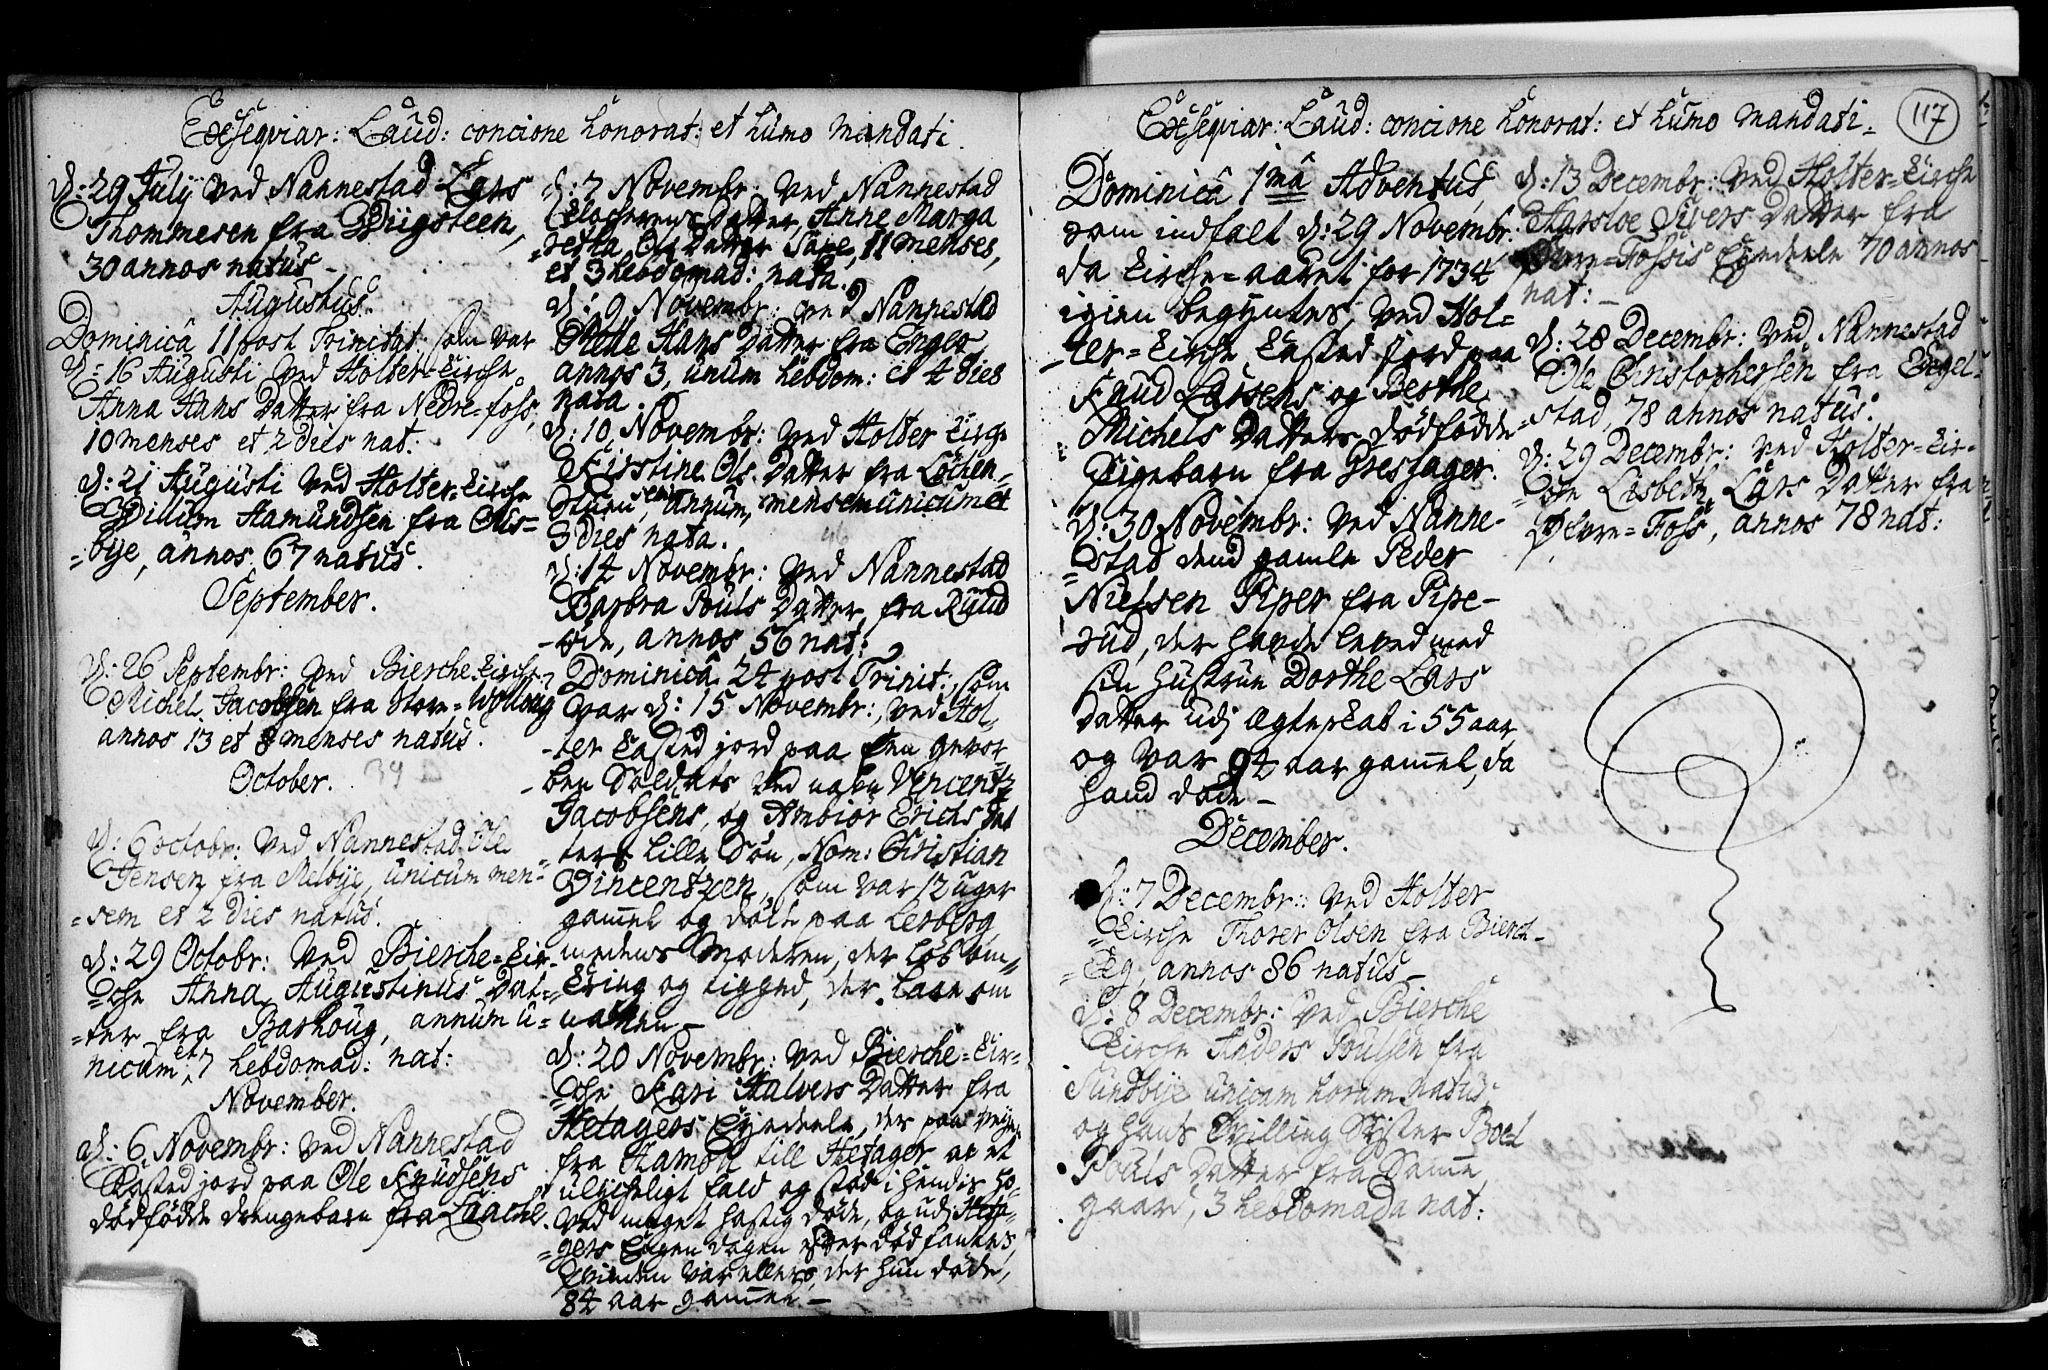 Exseqviar: Laud: concione honorat: et humo mandati.
d: 29 July ved Nannestad Lars
Thommesen fra Biigsteen,
30 annos natus –
Augustus.
Dominicâ 11 post Trinitat: som var
d: 16 Augusti ved Holter-Kirche
Anna Hans Datter fra Nedre-foss,
10 menses et 2 dies nat:
d: 21 Augusti ved Holter-Kirche
Willum Hamundsen fra Ous=
=bye, annos 67 natus.
September.
d: 26 Septembr: ved Bierche-Kirche
Michel Jacobsen fra Store-
annos 13 et 8 menses natus.
October.
d: 6 octobr: ved Nannestad Ole
Jensen fra Melbye, unicum men=
=sem et 2 dies natus.
d: 29 Octobr: ved Bierche=Kir=
=che Anna Augustinus Dat=
=ter fra Barhoug, annum u=
nicum et 7 hebdomad: nat:
November.
d: 6 Novembr: ved Nannestad
Kasted jord paa Ole Knudsens
dødfødde drengebarn fra Laache.
d: 7 Novembr: ved Nannestad
Klocherens Datter Anne Marga
=retha Ols Datter 11 menses,
et 3 hebdomad: nata.
d: 9 Novembr: ved Nannestad
Hans Datter fra Enger
annos 3, unum hebdom: et 4 dies
nata.
d: 10 Novembr: ved Holter Kirche
Kirstine Ols Datter fra Løchen=
annum, mensem unicum et
3 dies nata.
d: 14 Novembr: ved Nannestad
Barbra Pouls Datter fra Ruud
=øde, annos 56 nat:
Dominicâ 24 post Trinit:, som
var d: 15 Novembr:, ved Hol=
=ter Kasted jord paa een gevor=
=ben Soldats ved nafn Vincentz
Jacobsens, og Ambiør Erichs Dat
=ters lille Søn, Nom: Christian
Vincentzen, som var 12 uger
gamel og døde paa Lerberg,
medens Moderen, der løb om=
=kring og tigged, der laae om
natten –
d: 20 Novembr: ved Bierche=Kir=
=che Kari Halvors Datter fra
Hetagers Eyedeele, der paa veyen
fra till Hetager at et
ulycheligt fald og stød i hendis Ho=
=ved meget hastig døde, og udi Heta=
=gers dagen efter død fantes,
Qvinden var ellers, der hun døde,
84 aar gammel –
Exseqviar: Laud: concione honorat: et humo mandati=
117
Dominicâ 1mâ Adventus,
som indfalt d: 29 Novembr:
da Kirche=aaret for 1734
igien begyntes, ved Hol=
=ter=Kirche Kasted jord paa
Knud Larsens og Berthe
Michels Datters dødfødde
Pigebarn fra Gresager.
d: 30 Novembr: ved Nanne-
=stad dend gamle Peder
Nielsen Piper fra Pipe-
rud, der hafde leved med
sin Hustrue Dorthe Lars
Datter udj ægteskab i 55 aar,
og var 94 aar gamel, da
hand døde –
December.
d: 7 Decembr: ved Holter
Kirche Thorer Olsen fra Bierch-
=Eg, annos 86 natus –
d: 8 Decembr: ved Bierche
Kirche Anders Poulsen fra
Sundbye unicam horam natus,
og hans Tvilling Syster Boel
Pouls Datter fra Samme
gaard, 3 hebdomada nat:
d: 13 Decembr: ved Holter=Kirche
Sivers Datter fra
Øvre=Fossis Eyedeele 70 annos
nat: –
d: 28 Decembr: ved Nannestad
Ole Christophersen fra Engel=
=stad, 78 annos natus.
d: 29 Decembr: ved Holter=Kir=
=che Lisbeth Lars Datter fra
Øfvre=Foss, annos 78 nat: